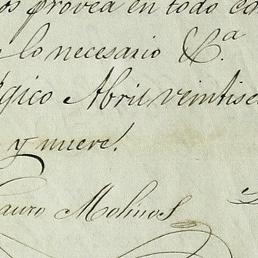 os provea en todo co
lo necesario &.ª
gico Abril veintise
y nueve.
auro Molinos